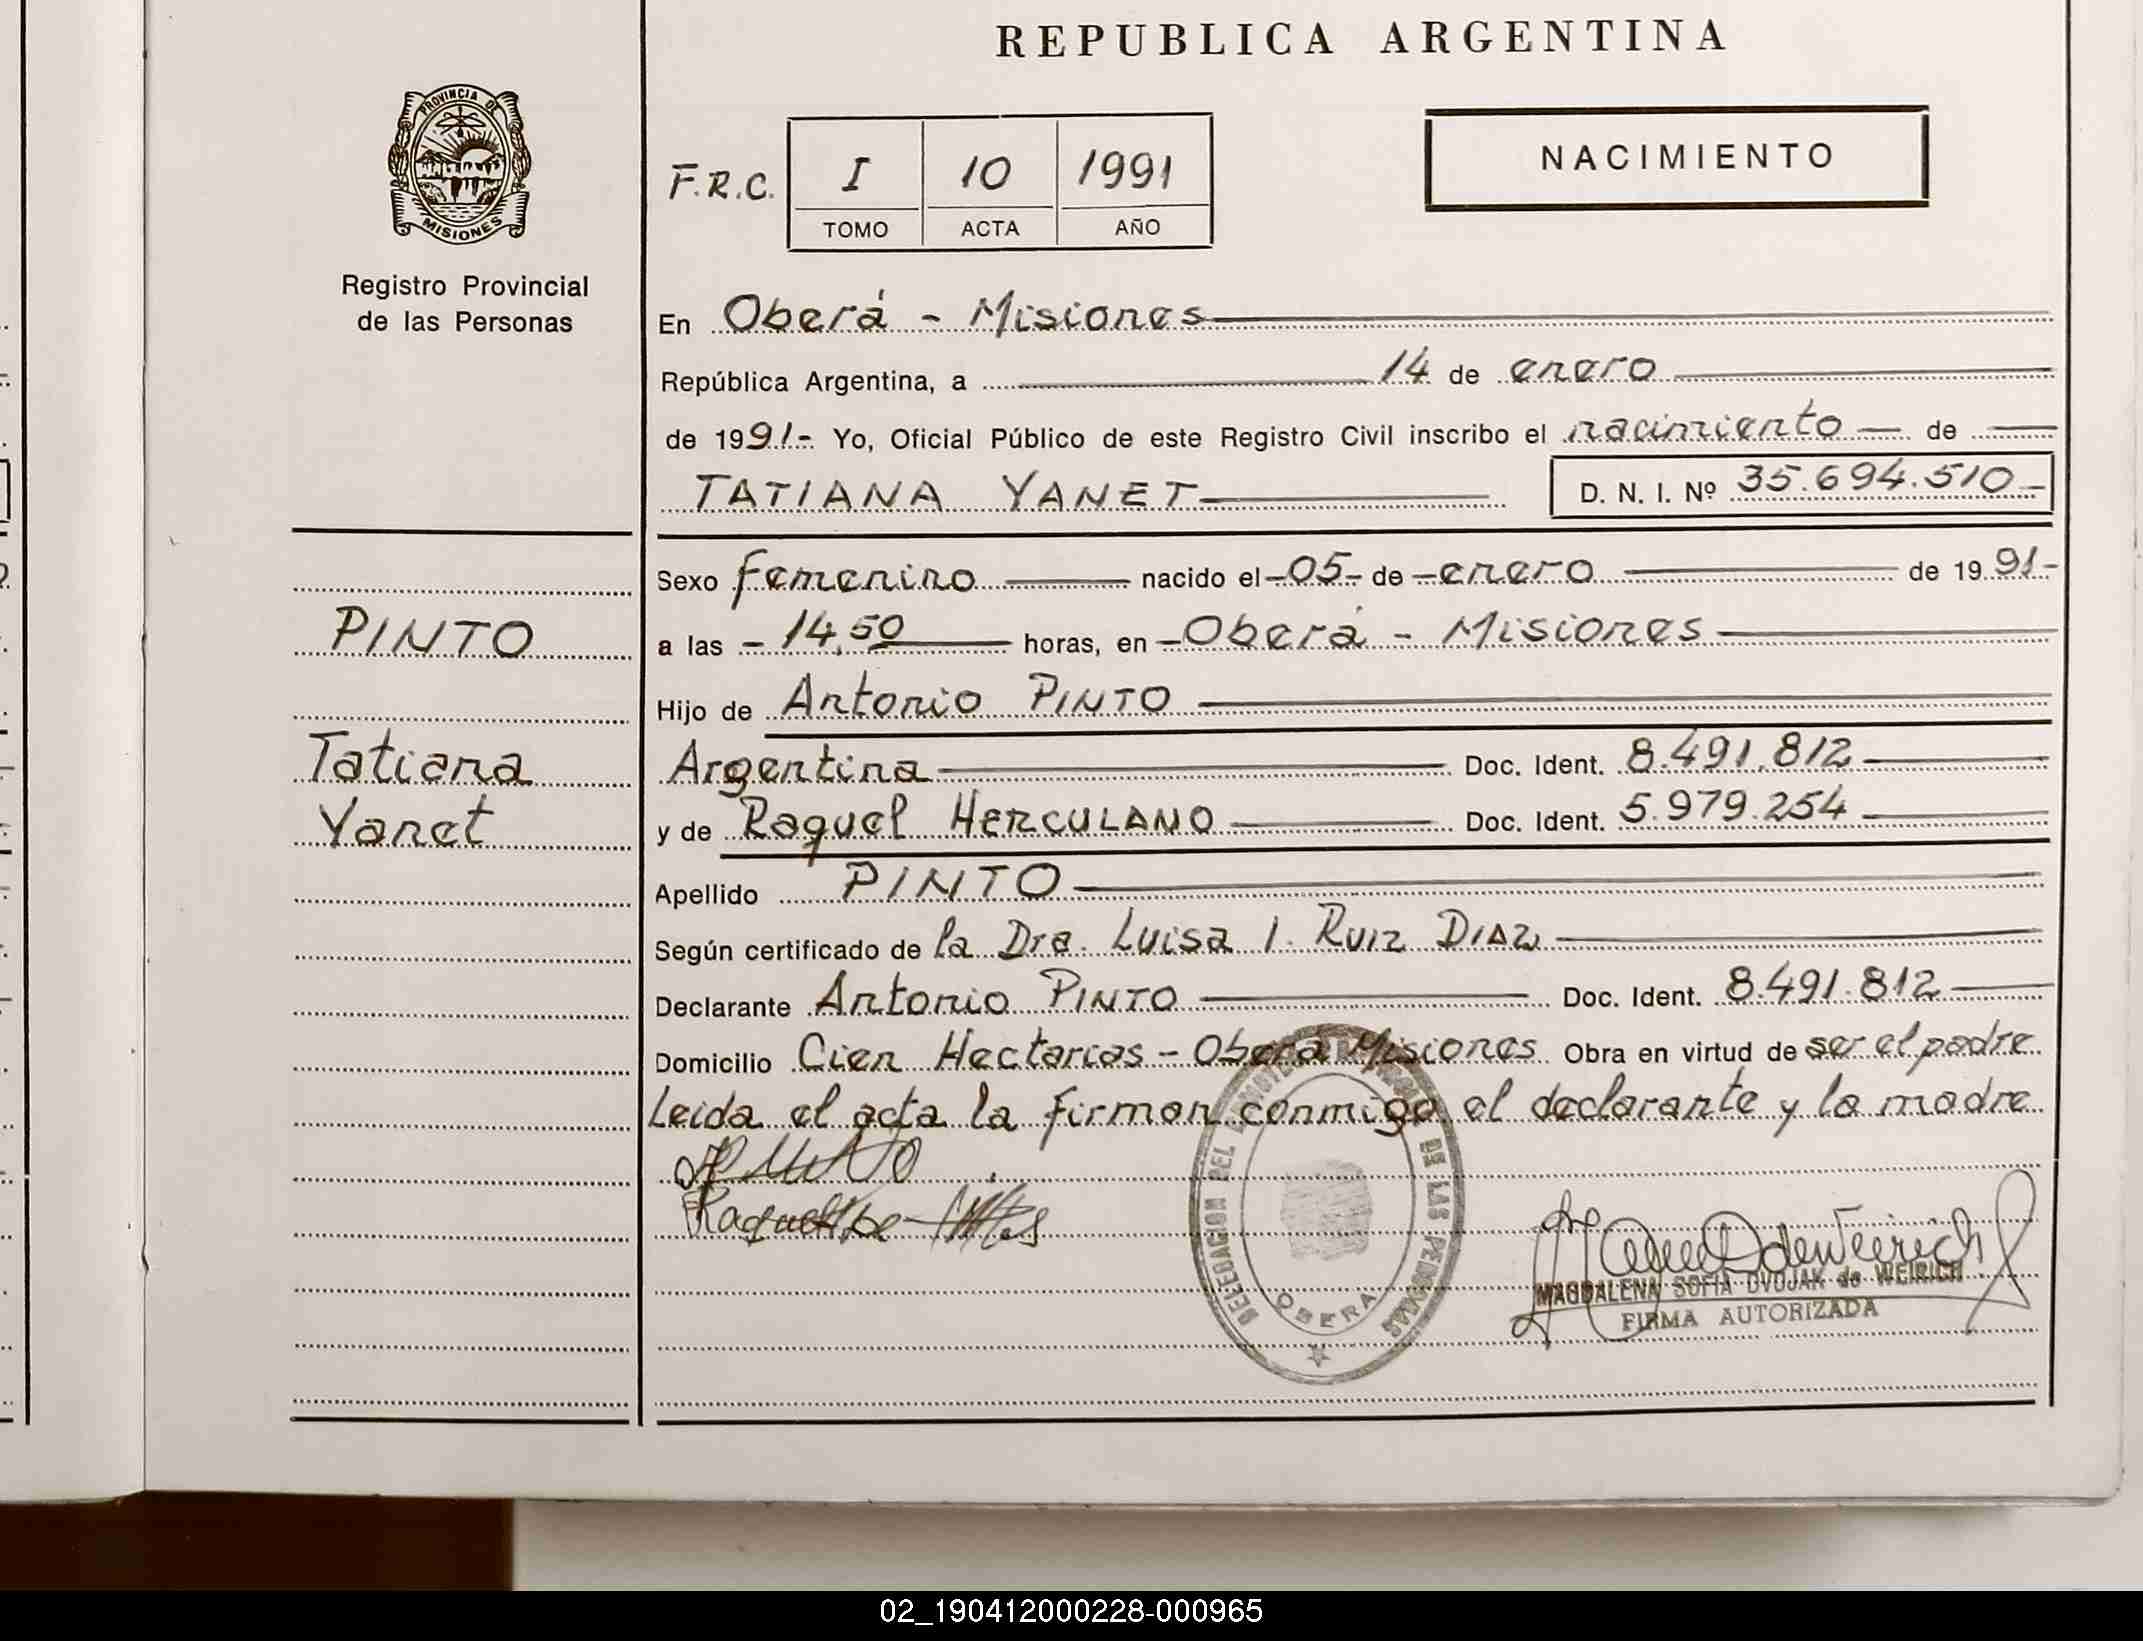 REPUBLICA ARGENTINA
PROVINCIA DE
MISIONES
Registro Provincial
de las Personas
F.R.C.
I 10 1991
TOMO ACTA AÑO
NACIMIENTO
En Oberá - Misiones
República Argentina, a 14 de enero
de 1991- Yo, Oficial Público de este Registro Civil inscribo el nacimiento de
TATIANA YANET D. N. I. Nº 35.694.510
Sexo femenino nacido el -05- de enero de 1991-
a las - 14,50 horas, en - Oberá - Misiones
Hijo de Antonio PINTO
Argentina Doc. Ident. 8.491.812
y de Raquel HERCULANO Doc. Ident. 5.979.254
Apellido PINTO
Según certificado de la Dra. Luisa I. Ruiz Diaz
Declarante Antonio PINTO Doc. Ident. 8.491.812
Domicilio Cien Hectarias - Oberá Misiones Obra en virtud de ser el padre
Leida el acta la firman conmigo el declarante y la madre
PINTO
Tatiana
Yanet
DELEGACION DEL DE LAS PERSONAS
OBERA
MAGDALENA SOFIA DVOJAK de WEIRICH
FIRMA AUTORIZADA
02_190412000228-000965